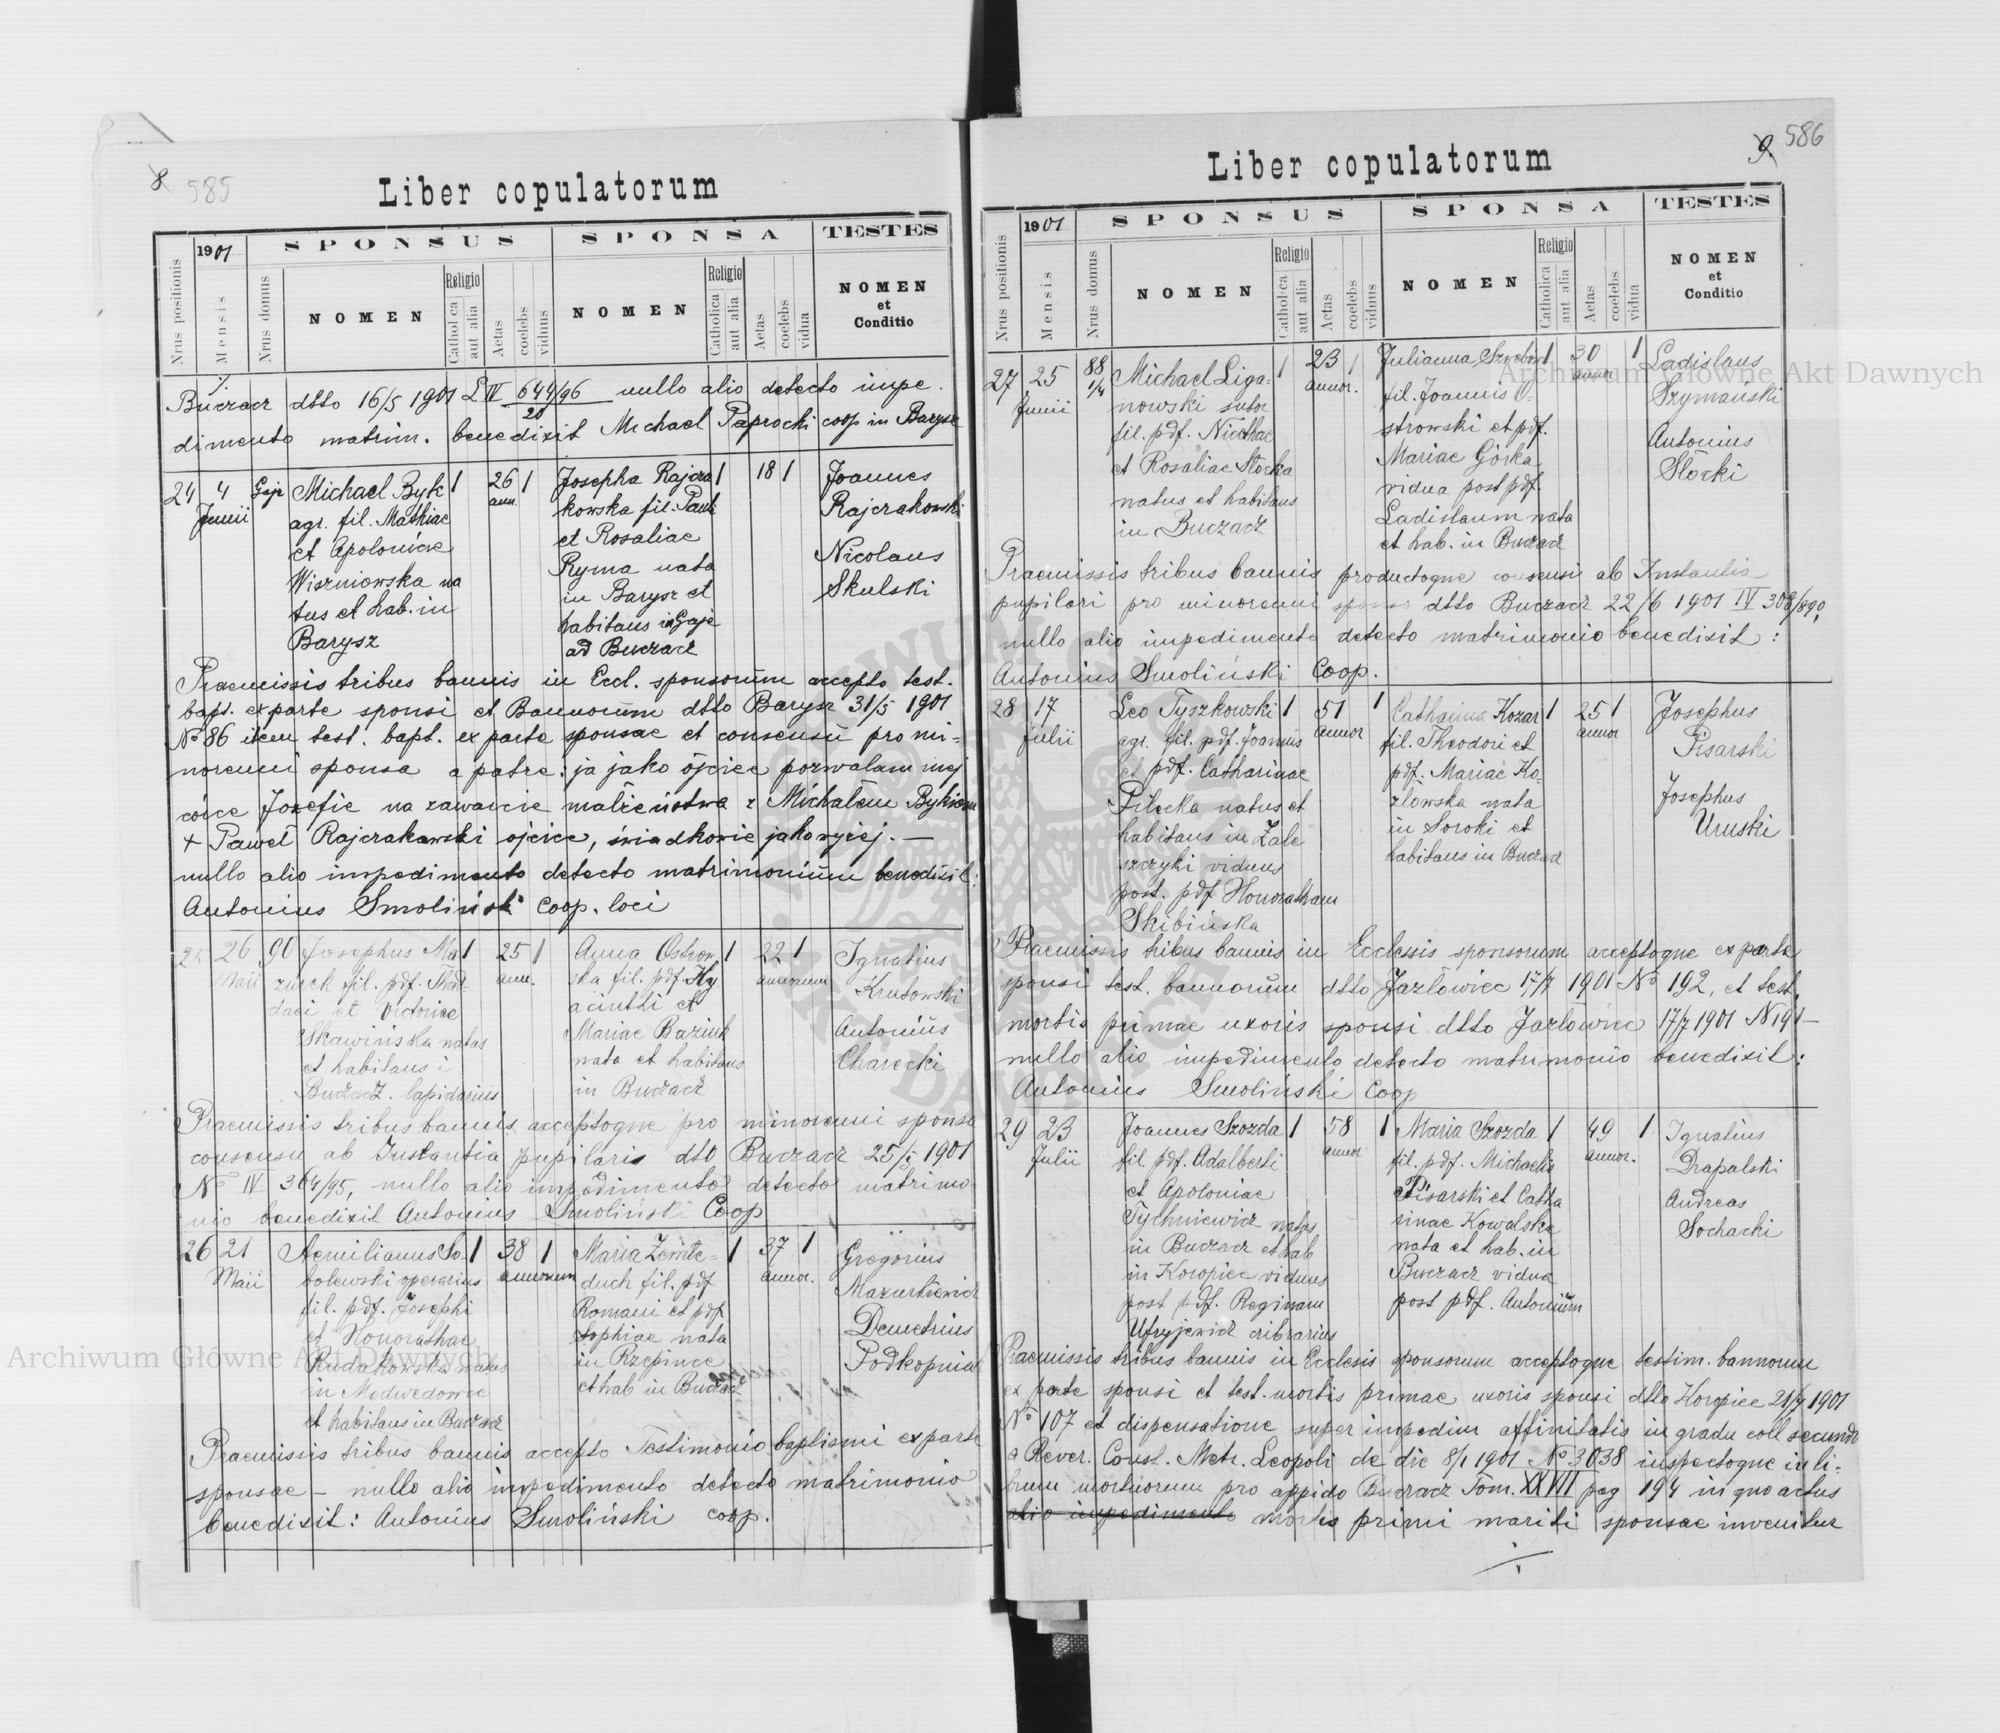 8 585
Liber copulatorum
Nrus positionis
1901
Mensis
Nrus domus
SPONSUS
NOMEN
Religio
Catholica
aut alia
Aetas
coelebs
viduus
SPONSA
NOMEN
Religio
Catholica
aut alia
Aetas
coelebs
vidua
TESTES
NOMEN
et
Conditio
Buczacz dtto 16/5 1901 L IV 644/96 nullo alio detecto impe.
20
dimento matrim. benedixit Michael Paprocki coop in Barysz
24 4 Gaje Michael Byk 1 26 1 Josepha Rajcza 1 18 1 Joannes
Junii agr. fil. Mathiae ann. kowska fil. Pauli Rajczakowski
et Apoloniae et Rosaliae Nicolaus
Wiszniowska na Ryma nata Skulski
tus et hab. in in Barysz et
Barysz habitans in Gaje
ad Buczacz
Praemissis tribus bannis in Eccl. sponsorum accepto test.
bapt. ex parte sponsi et Bannorum dtto Barysz 31/5 1901
No 86 item test. bapt. ex parte sponsae et consensu pro mi-
norenni sponsa a patre: ja jako ojciec pozwalam mej
córce Józefie na zawarcie małżeństwa z Michałem Bykiem
+ Paweł Rajczakowski ojciec, świadkowie jak wyżej. —
nullo alio impedimento detecto matrimonium benedixit:
Antonius Smoliński coop. loci
25 26 90 Josephus Ma 1 25 1 Anna Ostrow 1 22 1 Ignatius
Maii zurek fil. pdf. Thad ann. ska fil. pdf. Hy annorum Krutowski
daei et Victoriae acinthi et Antonius
Skawińska natus Mariae Baziuk Charecki
et habitans i nata et habitans
Buczacz. lapidarius in Buczacz
Praemissis tribus bannis acceptoque pro minorenni sponsa
consensu ab Instantia pupilaris dto Buczacz 25/5 1901
No IV 364/95, nullo alio impedimento detecto matrimo-
nio benedixit Antonius Smoliński Coop
26 21 Aemilianus So- 1 38 1 Maria 1 37 1 Gregorius
Maii bolewski operarius annorum duch fil. pdf annor. Mazurkiewicz
fil. pdf. Josephi Romani et pdf Demetrius
et Honorathae Sophiae nata Podkopniak
Rudakowska natus in Rzepince
in Medwedowce et hab in Buczacz
et habitans in Buczacz
Praemissis tribus bannis accepto Testimonio baptismi ex parte
sponsae – nullo alio impedimento detecto matrimonio
benedixit: Antonius Smoliński coop.
9. 586
Liber copulatorum
Nrus positionis
1901
Mensis
Nrus domus
SPONSUS
NOMEN
Religio
Catholica
aut alia
Aetas
coelebs
viduus
SPONSA
NOMEN
Religio
Catholica
aut alia
Aetas
coelebs
vidua
TESTES
NOMEN
et
Conditio
27 25 88 1/4 Michael Liga- 1 23 1 Julianna 1 30 1 Ladislaus
Junii nowski sutor annor. fil. Joannis O- annor Szymański
fil. pdf. Nicolae strowski et pdf. Antonius
et Rosaliae Słocka Mariae Górka Słocki
natus et habitans vidua post pdf.
in Buczacz Ladislaum nata
et hab. in Buczacz
Praemissis tribus bannis productoque consensu ab Instantia
pupilari pro minorenni sponso dtto Buczacz 22/6 1901 IV 308/890,
nullo alio impedimento detecto matrimonio benedixit:
Antonius Smoliński Coop.
28 17 Leo Tyszkowski 1 51 1 Catharina Kozar 1 25 1 Josephus
Julii agr. fil. pdf. Joannis annor fil. Theodori et annor Pisarski
et pdf. Catharinae pdf. Mariae Ko- Josephus
Pilecka natus et złowska nata Uruski
habitans in Zale in Soroki et
szczyki viduus habitans in Buczacz
post. pdf Honoratham
Skibińska
Praemissis tribus bannis in Ecclesiis sponsorum acceptoque ex parte
sponsi test. bannorum dtto Jazłowiec 17/7 1901 No 192, et test.
mortis primae uxoris sponsi dtto Jazłowiec 17/7 1901 N 191 –
nullo alio impedimento detecto matrimonio benedixit:
Antonius Smoliński Coop
29 23 Joannes Szozda 1 58 1 Maria Szozda 1 49 1 Ignatius
Julii fil. pdf. Adalberti annor fil. pdf. Michaelis annor. Drapalski
et Apoloniae Pisarski et Catha Andreas
Tychniewicz natus rinae Kowalska Sochacki
in Buczacz et hab nata et hab. in
in Koropiec viduus Buczacz vidua
post pdf. Reginam post pdf. Antonium
Ufryjewicz cribrarius
Praemissis tribus bannis in Ecclesiis sponsorum acceptoque testim. bannorum
ex parte sponsi et test. mortis primae uxoris sponsi dtto Koropiec 21/7 1901
No 107 et dispensatione super impedim affinitatis in gradu coll secundo
a Rever. Const. Metr. Leopoli de die 8/1 1901 No 3038 inspectoque in li-
brum mortuorum pro oppido Buczacz Tom. XXVII pag 194 in quo actus
alio impedimento mortis primi mariti sponsae invenitur
Archiwum Główne Akt Dawnych
Archiwum Główne Akt Dawnych